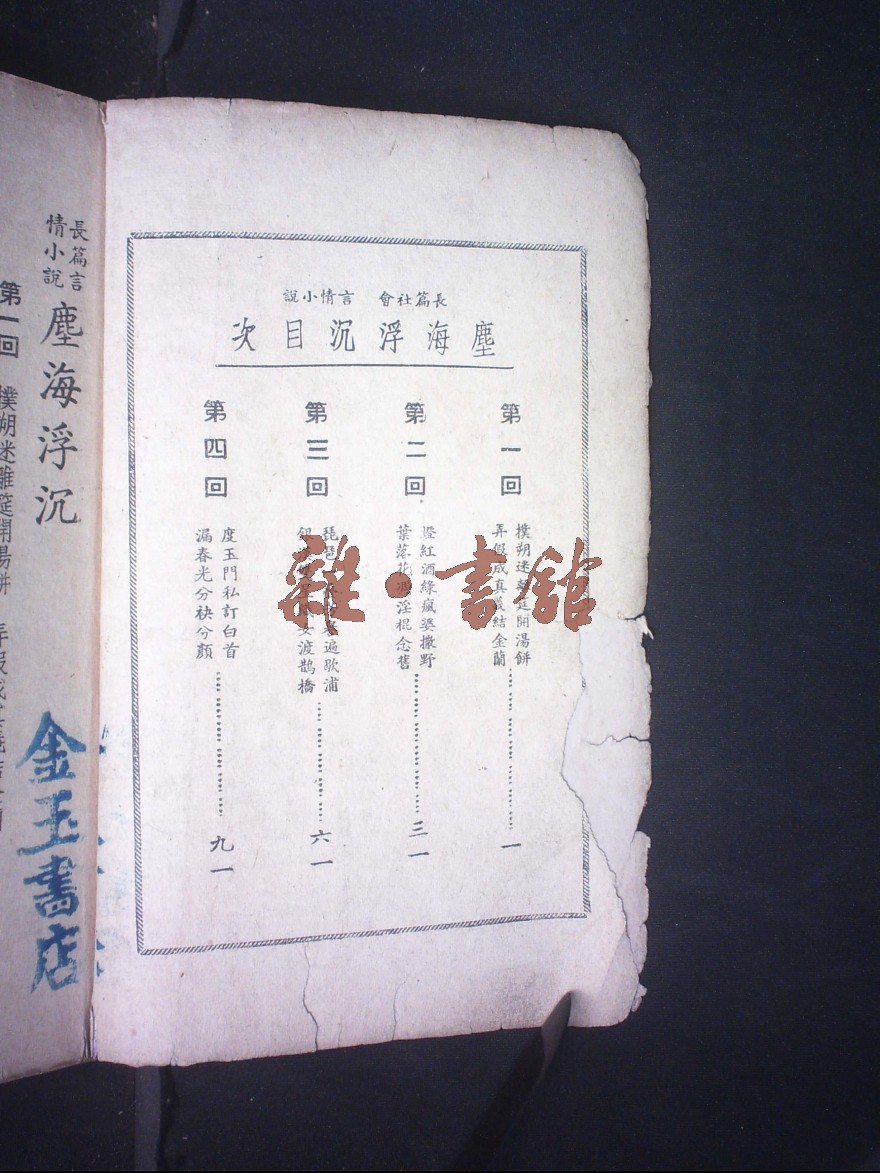 長篇社會 言情小說
塵海浮沉目次
第一回
樸朔迷離筵開湯餅
弄假成真義結金蘭
一
第二回
燈紅酒綠瘋婆撒野
葉落花淫棍念舊
三一
第三回
琵琶遍歇浦
女渡鵲橋
六一
第四回
度玉門私訂白首
漏春光分袂兮顏
九一
長篇言
情小說
塵海浮沉
第一回 樸朔迷離筵開湯餅
金玉書店
雜·書館